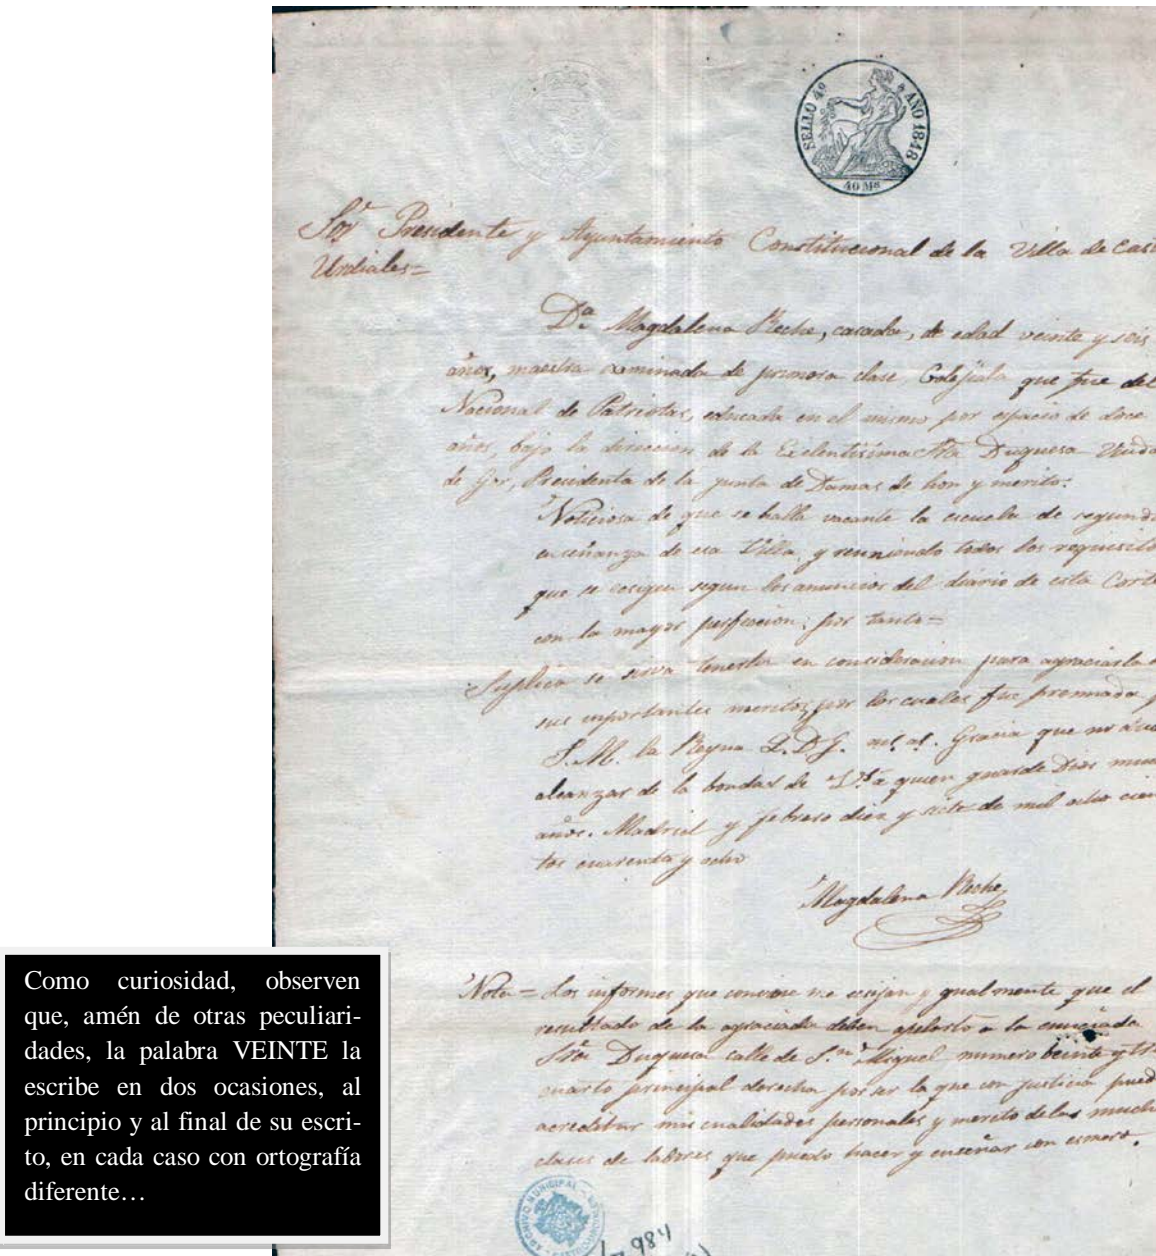 SELLO 4º AÑO 1848
40 Ms
Sor Presidente y Ayuntamiento Constitucional de la Villa de Cast
Urdiales=
Dª Magdalena Reche, casada, de edad veinte y seis
años, maestra xaminada de primera clase, Colejiala que fue del
Nacional de Patriotas, educada en el mismo por espacio de doce
años, bajo la direccion de la Exelentisima Sra Duquesa Viuda
de Gor, Presidenta de la junta de Damas de hon y merito:
Noticiosa de que se halla vacante la escuela de segunda
enseñanza de esa Villa, y reuniendo todos los requisitos
que se ecsigen segun los anuncios del diario de esta Corte
con la mayor perfeccion; por tanto=
Suplica se sirva tenerla en consideracion para agraciarla
sus importantes meritos, por los cuales fue premiada p
S.M. la Reyna Q.D.G. Gracia que no
alcanzar de la bondad de á quien guarde Dios muc
años. Madrid y febrero diez y siete de mil ocho cien
tos cuarenta y ocho
Magdalena Reche
Nota= Los informes que combine se ecsijan y gualmente que el
resultado de la agraciada deben apelarlo a la enunciada
Sra Duquesa calle de S.n Miguel numero beinte y tr
cuarto principal derecha por ser la que con justicia pued
acreditar mis cualidades personales y merito de las mucha
clases de labores que puedo hacer y enseñar con esmero.
ARCHIVO MUNICIPAL
984
Como curiosidad, observen
que, amén de otras peculiari-
dades, la palabra VEINTE la
escribe en dos ocasiones, al
principio y al final de su escri-
to, en cada caso con ortografía
diferente…